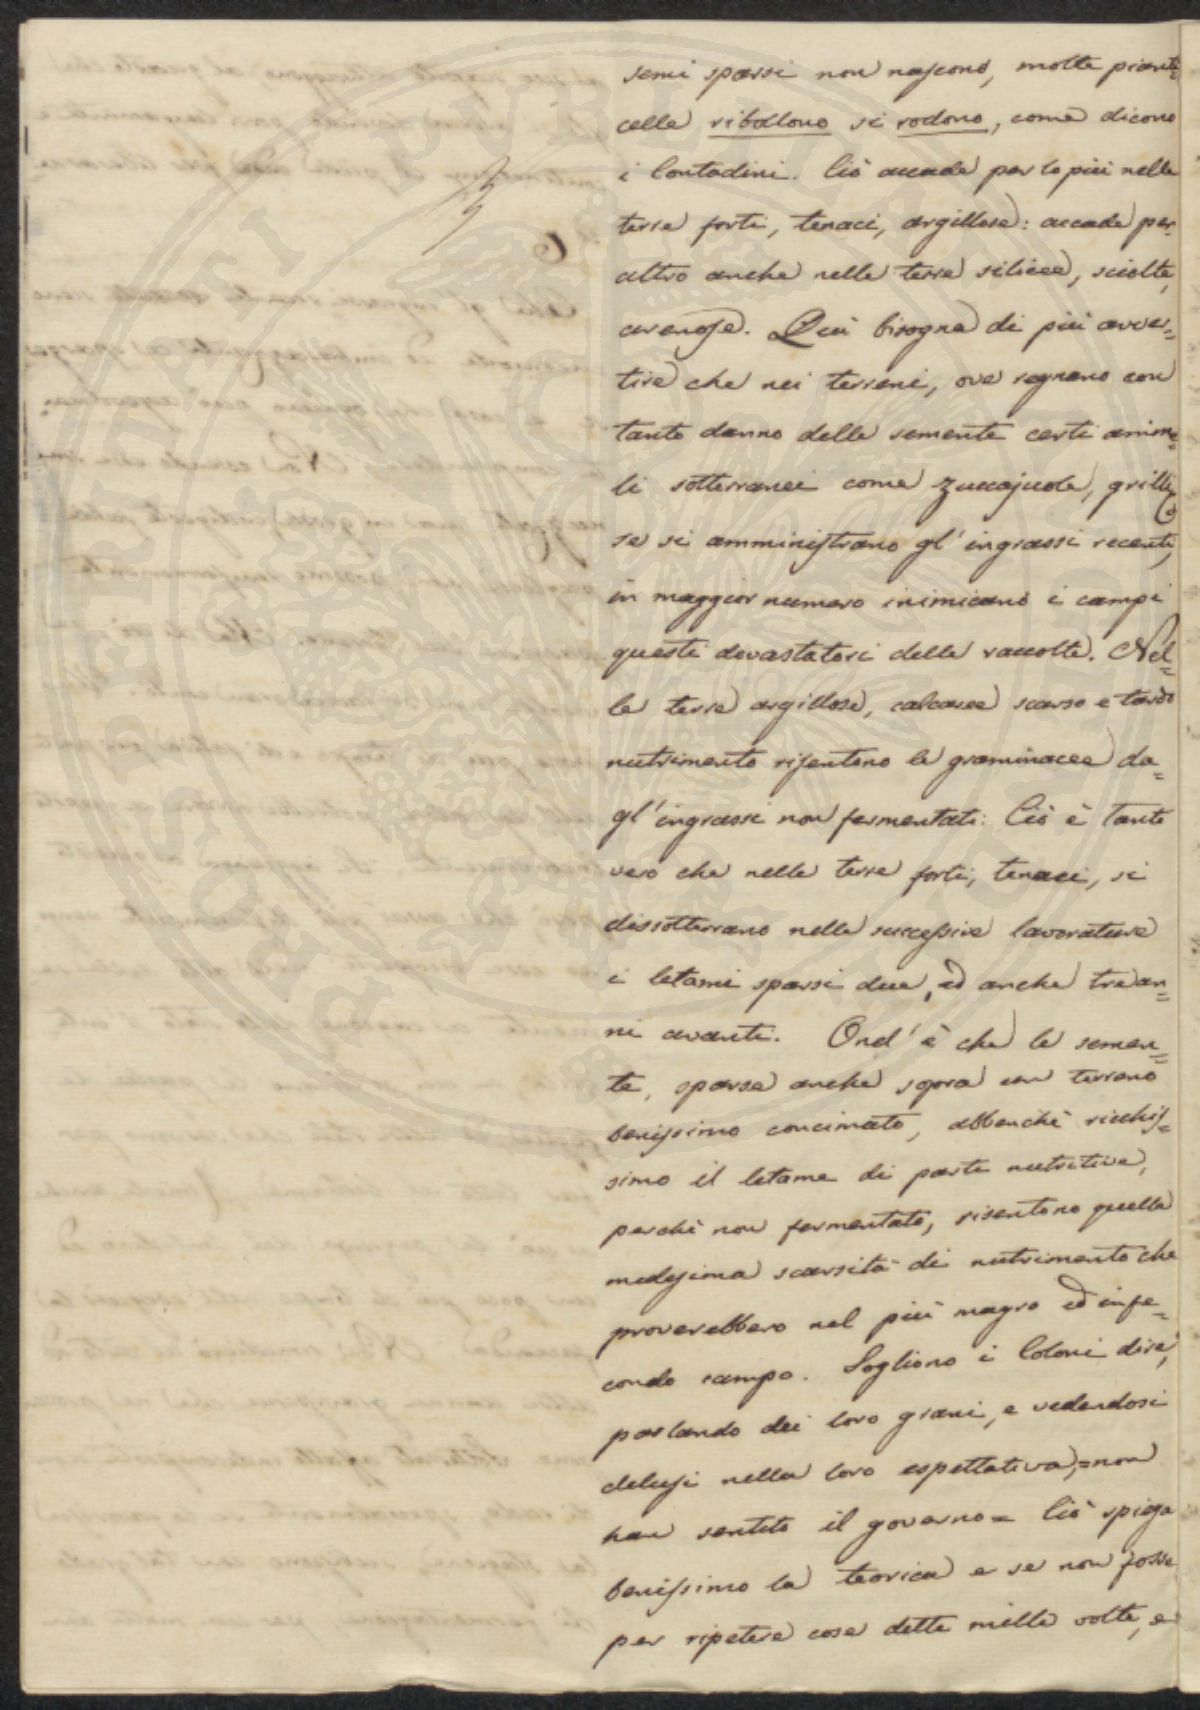 semi sparsi non nascono, molte pianti=
celle ribollono si rodono, come dicono
i Contadini. Ciò accade per lo più nelle
terre forti, tenaci, argillose: accade per
altro anche nelle terre silicee, sciolte,
arenose. Quì bisogna di più avver=
tire che nei terreni, ove regnano con
tanto danno delle semente certi anima=
li sotterranei come zuccajuole, grilli &
se si amministrano gl' ingrassi recenti,
in maggior numero inimicano i campi
questi devastatori delle raccolte. Nel=
le terre argillose, calcaree scarso e tardo
nutrimento risentono le graminacee da=
gl' ingrassi non fermentati: Ciò è tanto
vero che nelle terre forti, tenaci, si
dissotterrano nelle successive lavorature
i letami sparsi due, ed anche tre an=
ni avanti. Ond' è che le semen=
te, sparse anche sopra un terreno
benissimo concimato, abbenchè ricchis=
simo il letame di parti nutritive,
perchè non fermentato, risentono quella
medesima scarsità di nutrimento che
proverebbero nel più magro ed infe=
condo campo. Sogliono i Coloni dire,
parlando dei loro grani, e vedendosi
delusi nella loro espettativa, = non
han sentito il governo = Ciò spiega
benissimo la teorica e se non fosse
per ripetere cose dette mille volte, e